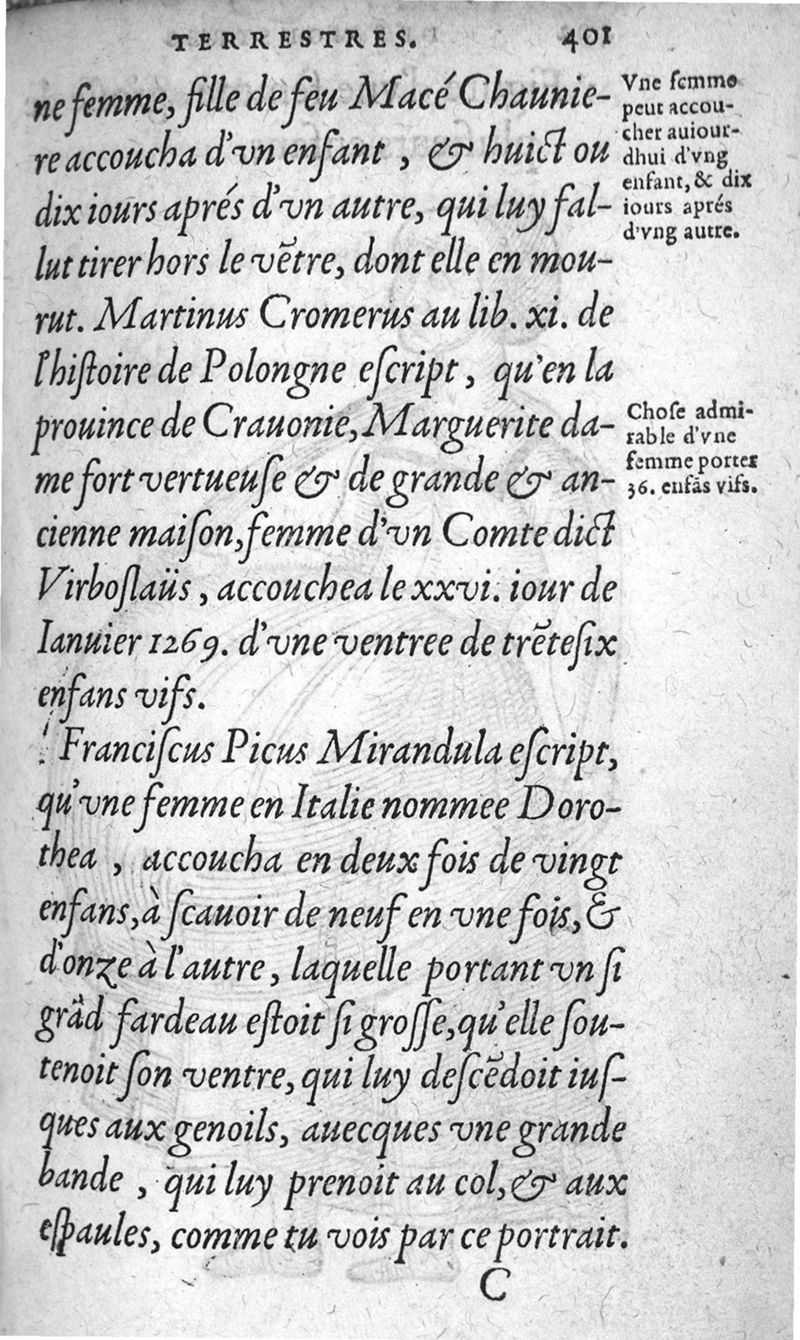 TERRESTRES. 401
ne femme, fille de feu Macé Chaunie-
re accoucha d'vn enfant , & huict ou
dix iours aprés d'vn autre, qui luy fal-
lut tirer hors le vẽtre, dont elle en mou-
rut. Martinus Cromerus au lib. xi. de
l'hiſtoire de Polongne eſcript, qu'en la
prouince de Crauonie, Marguerite da-
me fort vertueuſe & de grande & an-
cienne maiſon, femme d'vn Comte dict
Virboſlaüs, accouchea le xxvi. iour de
Ianuier 1269. d'vne ventree de trẽteſix
enfans vifs.
Franciſcus Picus Mirandula eſcript,
qu'vne femme en Italie nommee Doro-
thea , accoucha en deux fois de vingt
enfans, à ſcauoir de neuf en vne fois, &
d'onze à l'autre, laquelle portant vn ſi
grãd fardeau eſtoit ſi groſſe, qu'elle ſou-
tenoit ſon ventre, qui luy deſcẽdoit iuſ-
ques aux genoils, auecques vne grande
bande , qui luy prenoit au col, & aux
eſpaules, comme tu vois par ce portrait.
C
Vne femme
peut accou-
cher auiour-
dhui d'vng
enfant, & dix
iours aprés
d'vng autre.
Choſe admi-
rable d'vne
femme porter
36. enfãs vifs.